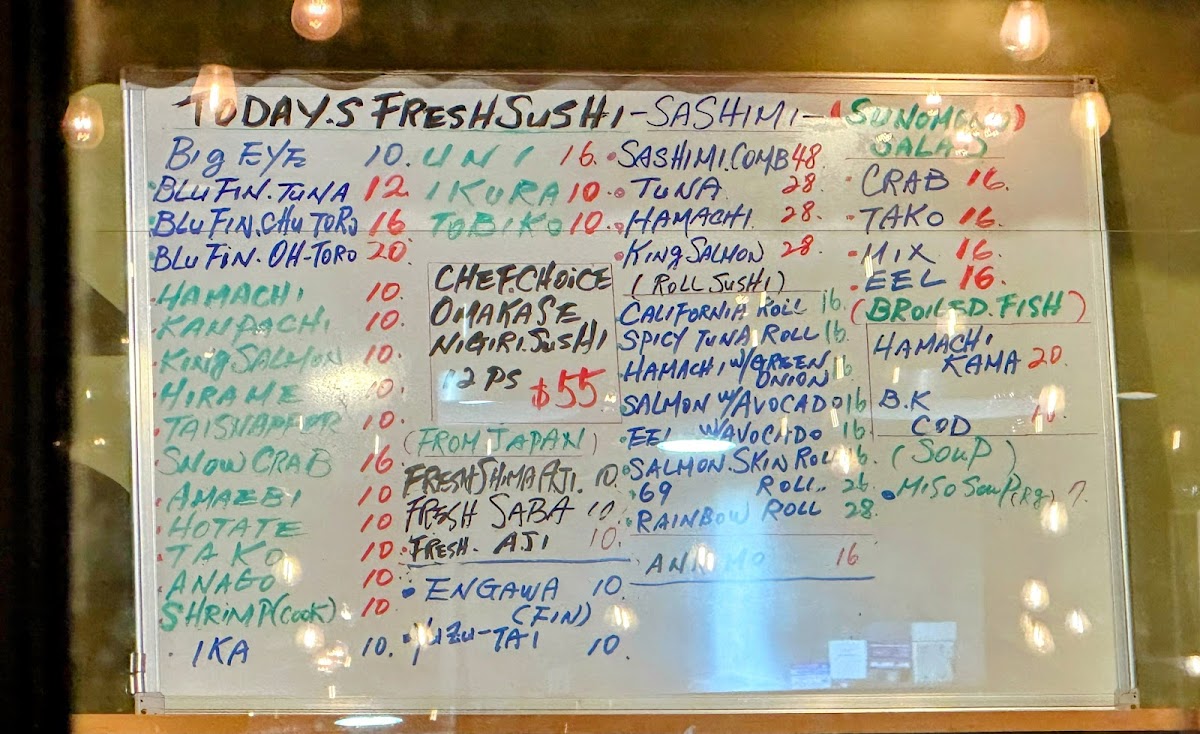 TODAY.S FRESH SUSHI - SASHIMI -
BIG EYE 10.
BLUFIN.TUNA 12
BLUFIN.CHU TORO 16
BLUFIN.OH-TORO 20.
HAMACHI 10.
KANPACHI 10.
KING SALMON 10.
HIRAME 10.
TAISNAPPER 10.
SNOW CRAB 16
AMAEBI 10
HOTATE 10
TAKO 10
ANAGO 10
SHRIMP(COOK) 10
IKA 10.
UNI 16.
IKURA 10
TOBIKO 10.
CHEF.CHOICE
OMAKASE
NIGIRI.SUSHI
12 PS $55
(FROM JAPAN)
FRESH SHIMA AJI. 10.
FRESH SABA 10
FRESH. AJI 10.
ENGAWA 10.
(FIN)
TAI 10.
SASHIMI.COMB 48
TUNA 28.
HAMACHI 28.
KING SALMON 28
(ROLL SUSHI)
CALIFORNIA ROLL 16
SPICY TUNA ROLL 16
HAMACHI W/GREEN
ONION 16
SALMON W/AVOCADO 16
EEL W/AVOCADO 16
SALMON.SKIN ROLL 16.
69 ROLL.. 26
RAINBOW ROLL 28
16
(SUNOMONO)
SALAD
CRAB 16.
TAKO 16.
MIX 16.
EEL 16.
(BROILED.FISH)
HAMACHI
KAMA 20.
B.K
COD
(SOUP)
MISO SOUP(Rg) 7.